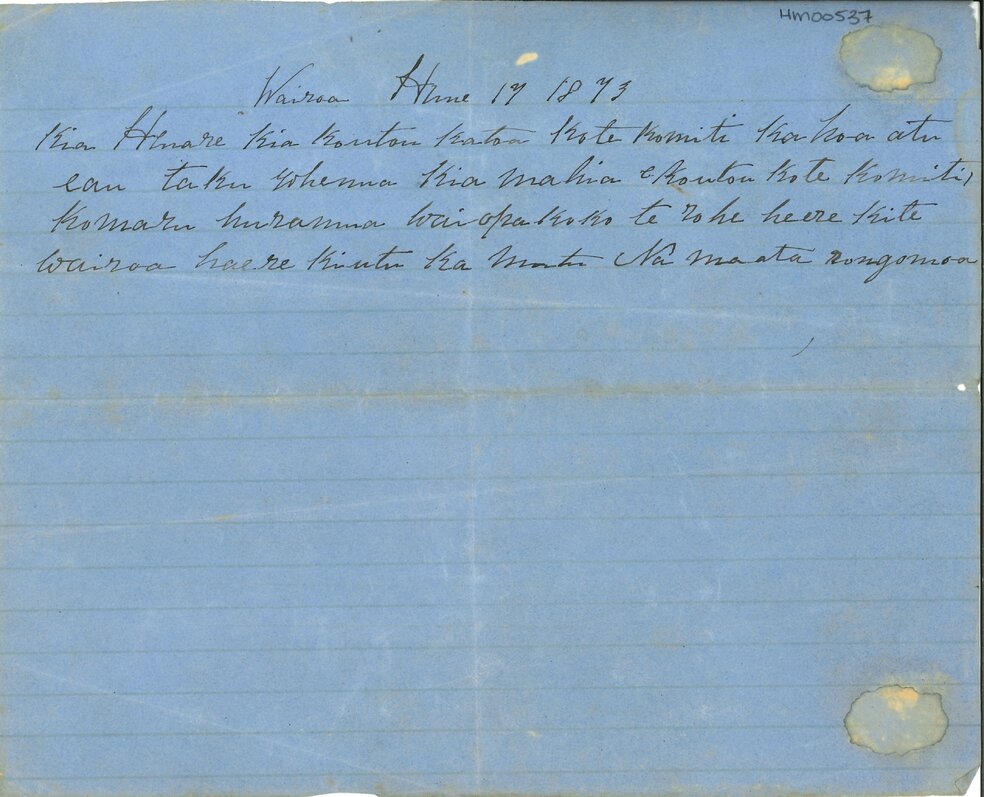 HM00537
Wairoa Hune 17 1873
Kia Henare Kia Koutou Katoa Kote Komiti Ka hoa atu
eau taku whenua Kia mahia e Koutou Kote Komiti,
Komaru huranua Waiopakoko te rohe heere Kite
Wairoa haere Kiutu Ka Mutu Na maata rongomoa